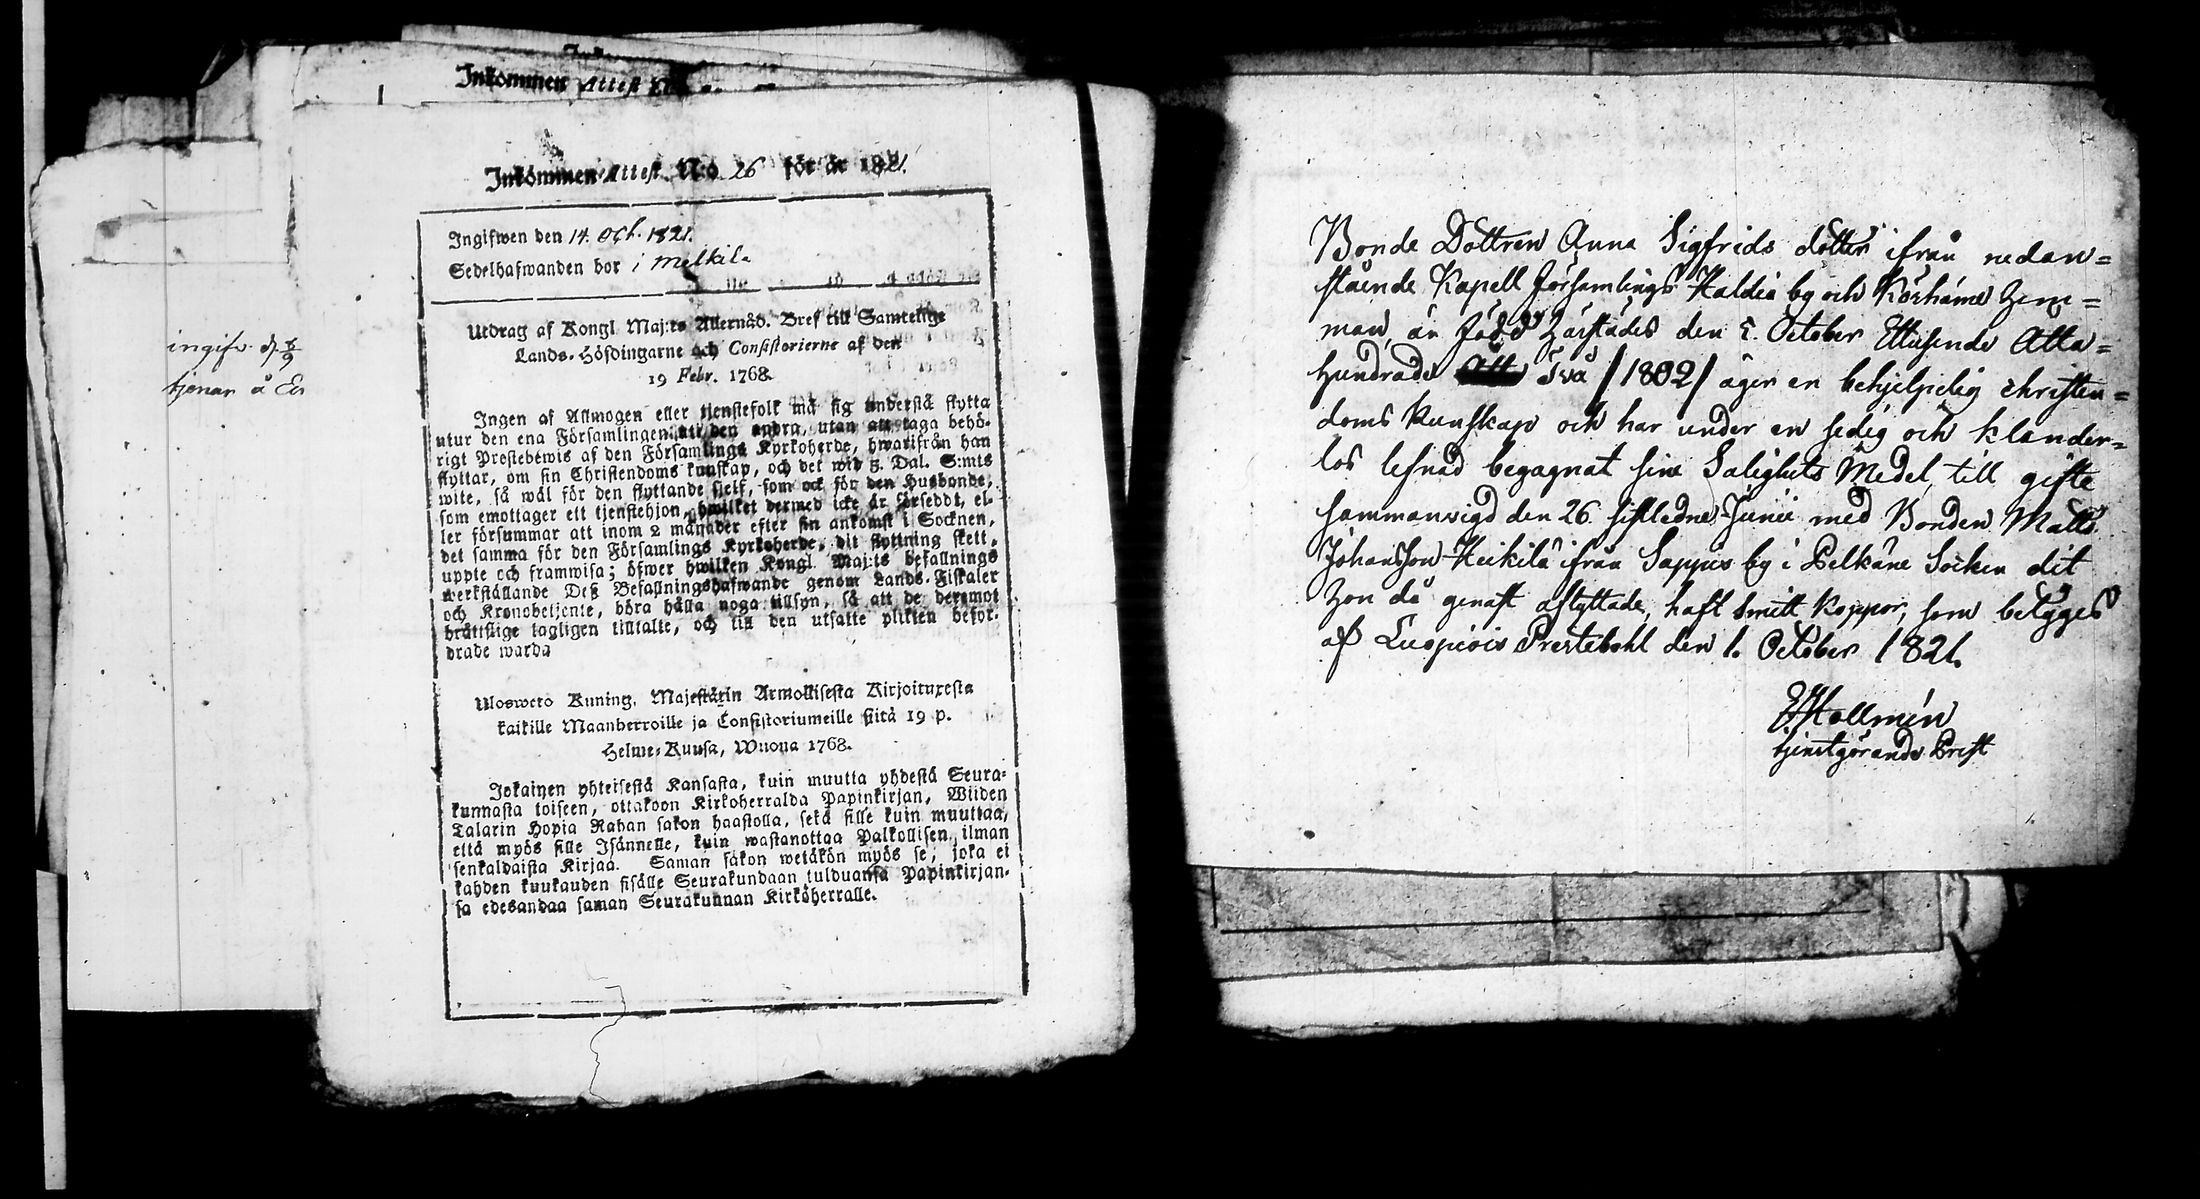 Inkommen Attest
ingifv. d. 8/9
tjenar å
Inkommen Attest. N:o 26 för år 1821.
Ingifwen den 14. Oct. 1821.
Sedelhafwanden bor i Mälkilä
Utdrag af Kongl. Maj:ts Allernåd. Bref till Samtelige
Lands-Höfdingarne och Consistorierne af den
19 Febr. 1768.
Ingen af Allmogen eller tjenstefolk må sig understå flytta
utur den ena Församlingen till den andra, utan att taga behö-
rigt Prestebewis af den Församlings Kyrkoherde, hwarifrån han
flyttar, om sin Christendoms kunskap, och det wid 5. Dal. S:mts
wite, så wäl för den flyttande sjelf, som ock för den Husbonde,
som emottager ett tjenstehjon, hwilket dermed icke är förseddt, el-
ler försummar att inom 2 månader efter sin ankomst i Socknen,
det samma för den Församlings Kyrkoherde, dit flyttning skett,
uppte och framwisa; öfwer hwilken Kongl. Maj:ts befallnings
werkställande Deß Befallningshafwande genom Lands-Fiskaler
och Kronobetjente, böra hålla noga tillsyn, så att de deremot
bråttslige lagligen tilltalte, och till den utsatte plikten befor-
drade warda
Ulosweto Kuning. Majestätin Armollisesta Kirjoituxesta
kaikille Maanherroille ja Consistoriumeille siitä 19 p.
Helme-Kuusa, Wuona 1768.
Jokainen yhteisestä Kansasta, kuin muutta yhdestä Seura-
kunnasta toiseen, ottakoon Kirkoherralda Papinkirjan, Wiiden
Talarin Hopia Rahan sakon haastolla, sekä sille kuin muuttaa,
että myös sille Isännelle, kuin wastanottaa Palkollisen ilman
senkaldaista Kirjaa. Saman sakon wetäkön myös se, joka ei
kahden kuukauden sisälle Seurakundaan tulduansa Papinkirjan-
sa edesandaa saman Seurakunnan Kirköherralle.
Bonde Dottren Anna Sigfrids dotter ifrån nedan=
stående Kapell Församlings Haldia by och hem=
man, är född härstädes den 5. October Ettusende Atta=
hundrade Två /1802/ äger en behjelpelig christen=
doms kunskap och har under en sedig och klander=
lös lefnad begagnat sina Salighets Medel, till gifte
sammanvigd den 26 sistledne Junii med Bonden Matts
Johansson Heikilä ifrån Sappio by i Pelkäne Socken dit
hon då genast aflyttade, haft Smitt Koppor, som betyges
af Luopiois Prestebohl den 1. October 1821.
Hollmén
tjenstgörande Prest